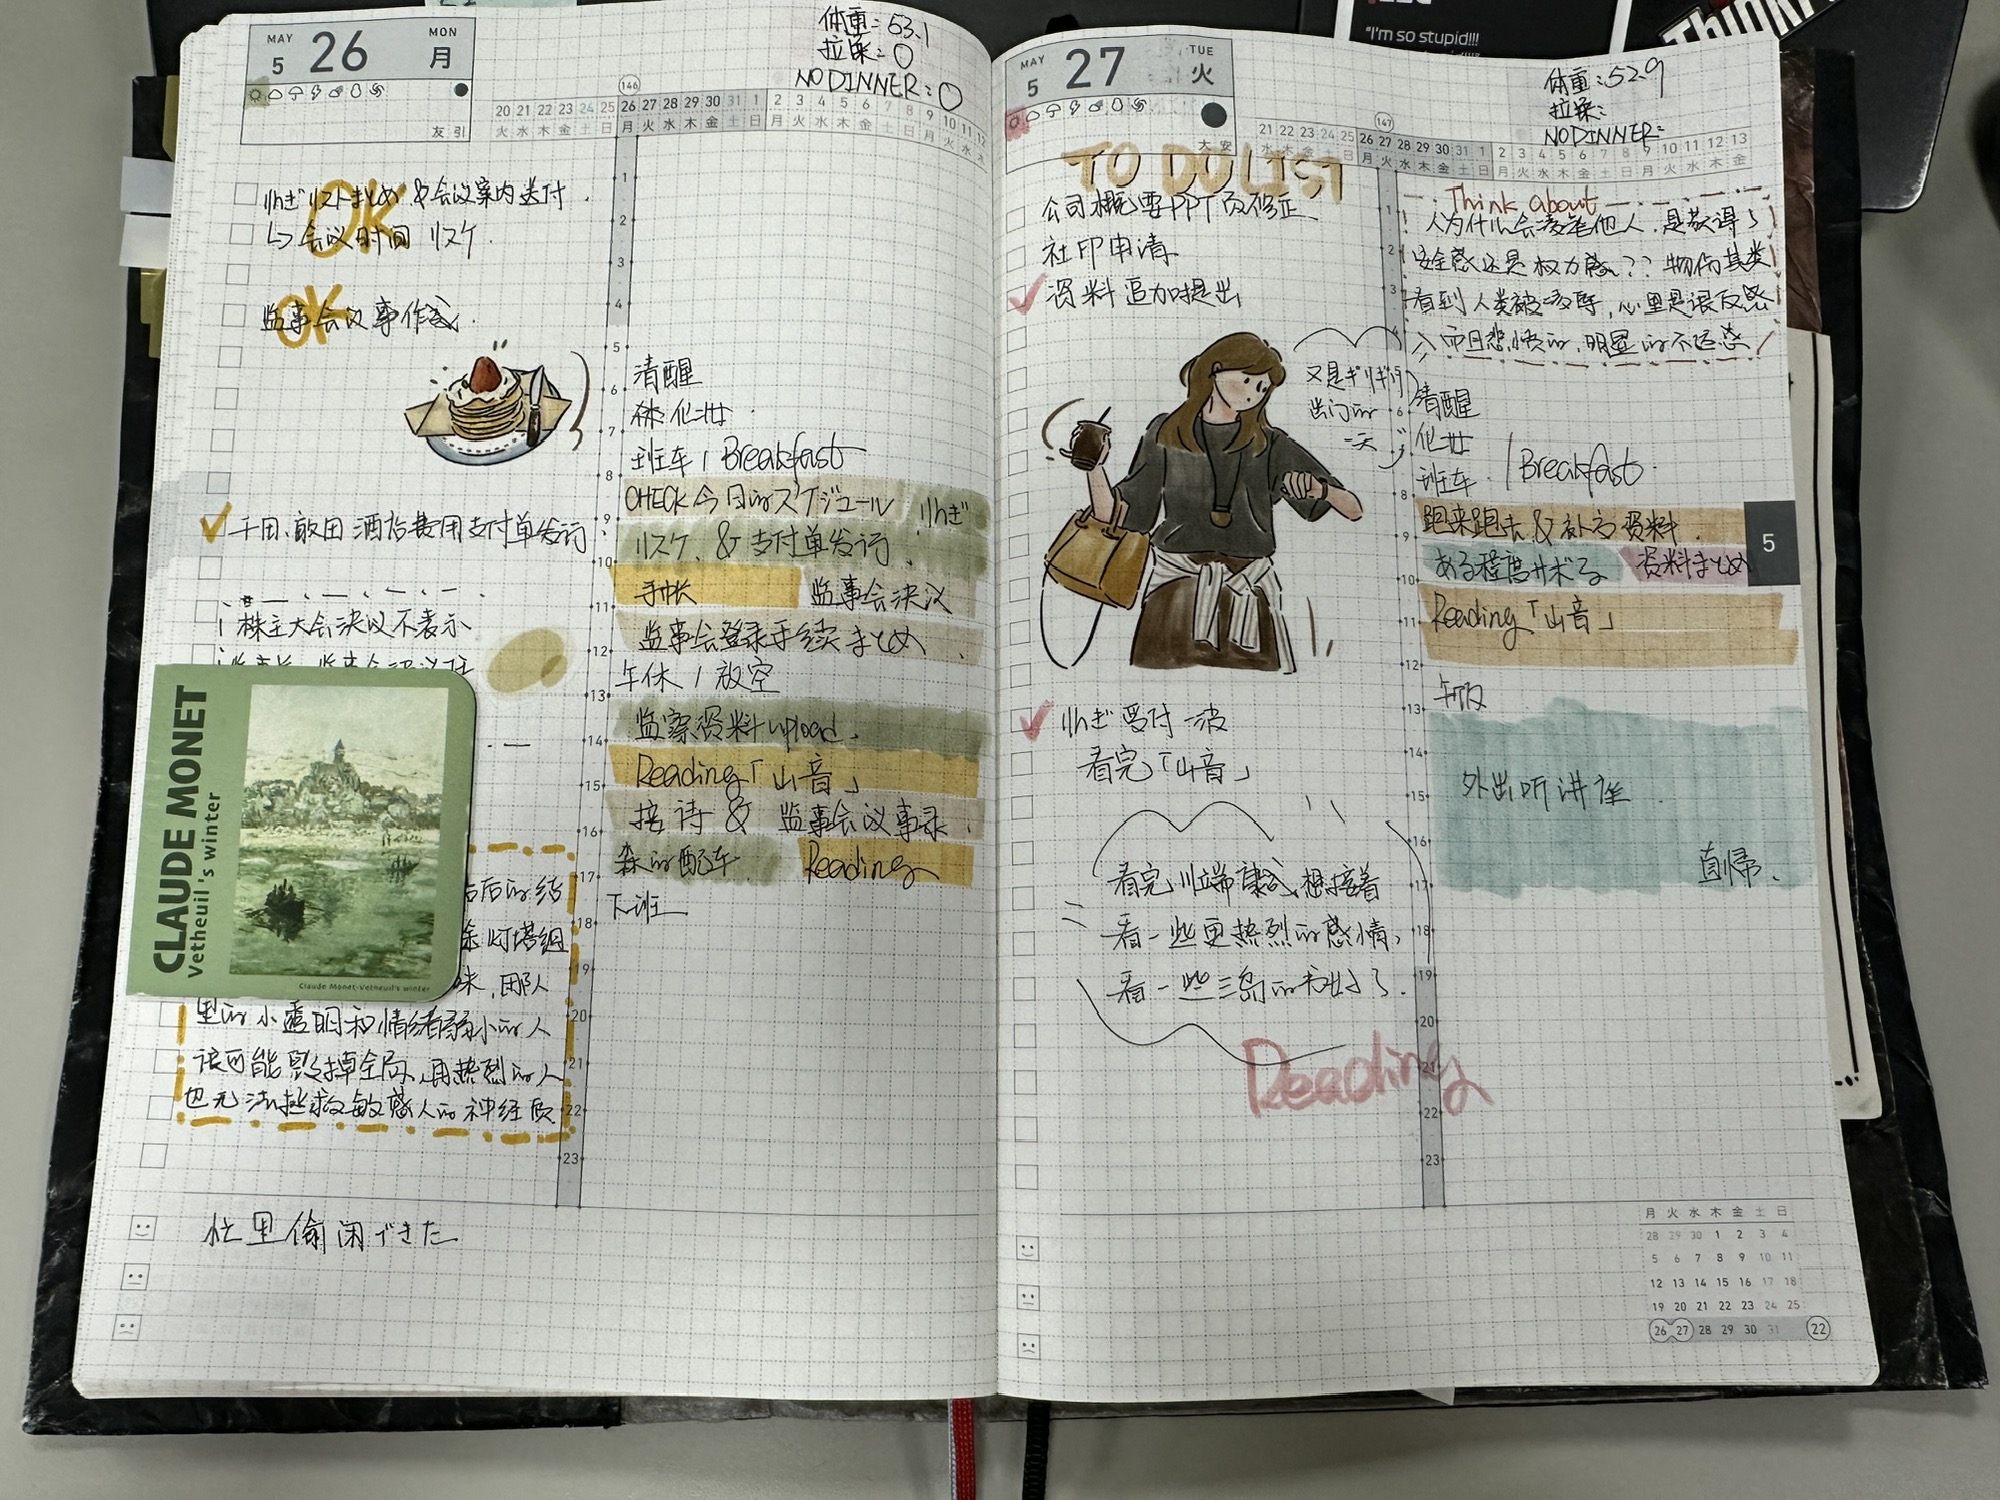 "I'm so stupid!!!
MAY 5 26 MON 月
友引
体重：53.1
拉屎：0
NO DINNER：0
146
20 21 22 23 24 25 26 27 28 29 30 31 1 2 3 4 5 6 7 8 9 10 11 12
火 水 木 金 土 日 月 火 水 木 金 土 日 月 火 水 木 金 土 日 月 火 水 木
りんぎリストまとめ & 会议案内送付
↳会议时间 リスケ.
OK
监事会议事作成.
OK
千田、敢田 酒店费用支付单发行
株主大会决议不表示
CLAUDE MONET
Vetheuil's winter
Claude Monet-Vetheuil's winter
后的结
灯塔组
味,团队
里的小透明和情绪弱小的人
很可能毁掉全局,再热烈的人
也无法拯救敏感人的神经质
忙里偷闲できた
1
2
3
4
5
6
7
8
9
10
11
12
13
14
15
16
17
18
19
20
21
22
23
清醒
化妆
班车 / Breakfast
CHECK今日のスケジュール りんぎ
リスケ、& 支付单发行.
手帐 监事会决议
监事会登录手续まとめ.
午休 / 放空
监察资料upload.
Reading「山音」
接待 & 监事会议事录.
森的配车 Reading
下班
MAY 5 27 TUE 火
大安
体重：52.9
拉屎：
NO DINNER：
147
21 22 23 24 25 26 27 28 29 30 31 1 2 3 4 5 6 7 8 9 10 11 12 13
水 木 金 土 日 月 火 水 木 金 土 日 月 火 水 木 金 土 日 月 火 水 木 金
TO DO LIST
公司概要PPT页修正
社印申请
资料追加提出
又是ギリギリ
出门的
一天
りんぎ受付一波
看完「山音」
看完川端康成,想接着
看一些更热烈的感情,
看一些三岛的书好了.
Reading
Think about
人为什么会凌辱他人,是获得了
安全感还是权力感?? 物伤其类
看到人类被凌辱,心里是很反感
而且悲愤的,明显的不适感
1
2
3
6
8
9
10
11
12
13
14
15
16
17
18
19
20
21
22
23
清醒
化妆
班车 / Breakfast.
跑来跑去 & 补充资料
ある程度サボる 资料まとめ
Reading「山音」
午饭
外出听讲座.
直帰.
5
月 火 水 木 金 土 日
28 29 30 1 2 3 4
5 6 7 8 9 10 11
12 13 14 15 16 17 18
19 20 21 22 23 24 25
26 27 28 29 30 31
22